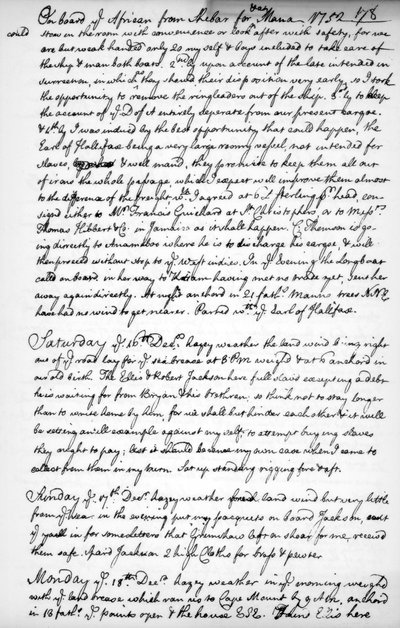 On board yᵉ African from Kebar for Mana. 1752 178
stow in the room with convenience or look after with safety, for we
are but weak handed only 20 my self & boys included to take care of
the ship & man both boats. 2ⁿᵈˡʸ upon account of the late intended in
surrection, in which they shewed their disposition very early, so I took
the opportunity to remove the ringleaders out of the ship. 3ˡʸ to keep
the account of yᵉ of it entirely seperate from our present cargoe.
& 4ᵗʰˡʸ I was induced by the best opportunity that could happen, the
Earl of Hallifax being a very large roomy vessel, not intended for
slaves, & well man'd, they promise to keep them all out
of irons the whole passage, which I expect will improve them almost
to the difference of the freight wᶜʰ I agreed at 6£ sterling pʳ head, con
signed either to Mʳ Francis Guichard at Sᵗ Christophers, or to Messʳˢ
Thomas Hibbert & Cᵒ in Jamaica as it shall happen. C. Thomson is go
ing directly to Anamaboe where he is to discharge his cargoe, & will
then proceed without stop to yᵉ West indies. In yᵉ Evening the Longboat
called on board in her way to having met no trade yet, sent her
away again directly. At night anchord in 21 fathˢ Manna trees NNE,
have had no wind to get nearer. Parted wᵗʰ yᵉ Earl of Halifax.
Saturday yᵉ 16ᵗʰ Decʳ. hazey weather the land wind being right
out of yᵉ road lay for yᵉ sea breeze at 3 PM weighd & at 6 anchord in
our old birth. The Ellis & Robert Jackson here full slav'd excepting a debt
he is waiting for from Bryan & his brethren, so think not to stay longer
than to wrise home by him, for we shall but hinder each other & it will
be setting an ill example against my self, to attempt buying slaves
they ought to pay; lest it should become my own case when I come to
collect from them in my turn. Set up standing rigging fore & aft.
Sunday yᵉ 17ᵗʰ Decʳ. hazey weather land wind but very little
from yᵉ sea in the evening put my pacquets on board Jackson, sent
yᵉ yaul in for some letters that left on shoar for me, receivd
them safe. Spard Jackson 2 high Cloths for brass & pewter
Monday yᵉ 18ᵗʰ Decʳ. hazey weather in yᵉ morning weighd
with yᵉ land breeze which ran us to Cape Mount by 9 Am, anchord
in 13 fathˢ yᵉ points open & the house ESE. Ellis here